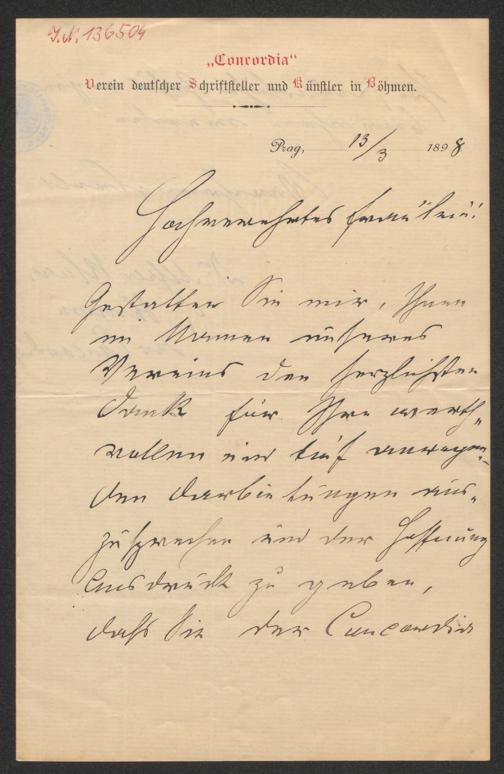 J.N. 136504
„Concordia“
Verein deutscher Schriftsteller und Künstler in Böhmen.
Prag, 13/3 1898
Hochverehrtes Fräulein!
Gestatten Sie mir, Ihnen
im Namen unseres
Vereins den herzlichsten
Dank für Ihre werth-
vollen und tief anregen-
den Darbietungen aus-
zusprechen und der Hoffnung
Ausdruck zu geben,
daß Sie der Concordia